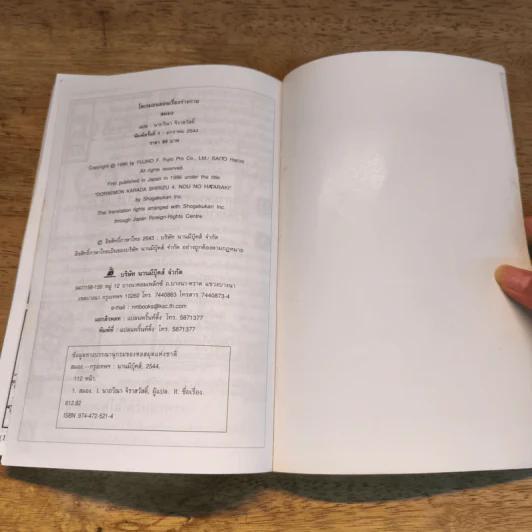 โดเรมอนสอนเรื่องร่างกาย
สมอง
แปล : นายวีณา จิราสวัสดิ์
พิมพ์ครั้งที่ 4 : มกราคม 2544
ราคา 80 บาท
Copyright © 1986 by FUJIKO F. Fujio Pro Co., Ltd./ SAITO Haruo
All rights reserved.
First published in Japan in 1986 under the title
"DORAEMON KARADA SHIRIZU 4, NOU NO HATARAKI"
by Shogakukan Inc.
Thai translation rights arranged with Shogakukan Inc.
through Japan Foreign-Rights Centre
© ลิขสิทธิ์ภาษาไทย 2543 : บริษัท นานมีบุ๊คส์ จำกัด
ลิขสิทธิ์ภาษาไทยเป็นของบริษัท นานมีบุ๊คส์ จำกัด อย่างถูกต้องตามกฎหมาย
บริษัท นานมีบุ๊คส์ จำกัด
หมู่ 12 บางนาคอมเพล็กซ์ ถ.บางนา-ตราด แขวงบางนา
เขตบางนา กรุงเทพฯ 10260 โทร. 7440863 โทรสาร 7440873-4
e-mail : nmbooks@ksc.th.com
แยกสีเพลท : แปลนพริ้นท์ติ้ง โทร. 5871377
พิมพ์ที่ : แปลนพริ้นท์ติ้ง โทร. 5871377
ข้อมูลทางบรรณานุกรมของหอสมุดแห่งชาติ
สมอง.--กรุงเทพฯ : นานมีบุ๊คส์, 2544.
112 หน้า.
1. สมอง. I. นายวีณา จิราสวัสดิ์, ผู้แปล. II. ชื่อเรื่อง.
612.82
ISBN 974-472-521-4